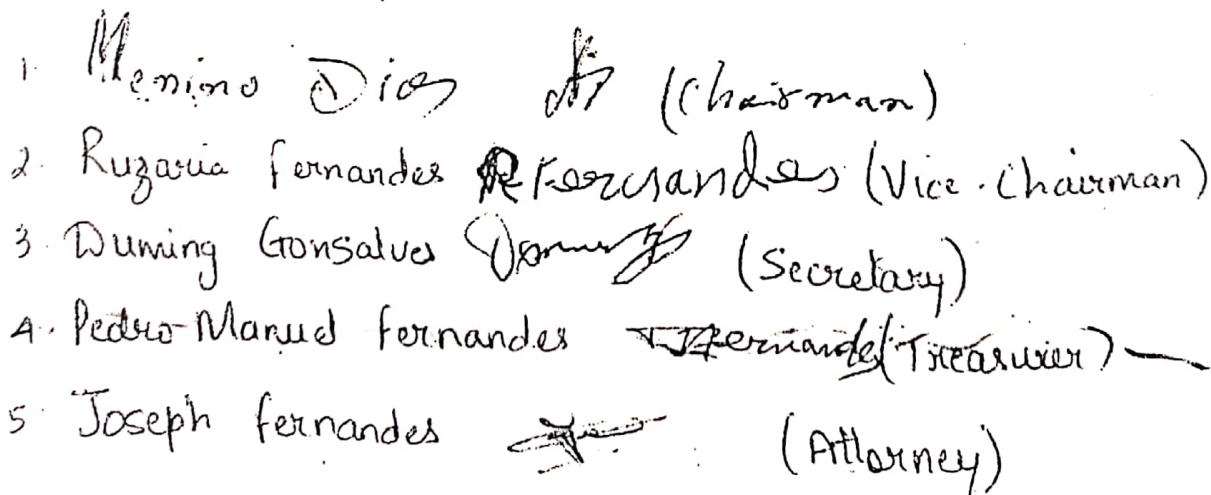 1. Menino Dias (Chairman)
2. Ruzaria fernandes RFernandes (Vice-Chairman)
3. Duming Gonsalves (Secretary)
4. Pedro Manuel fernandes Fernandes (Treasurier)
5. Joseph fernandes (Attorney)